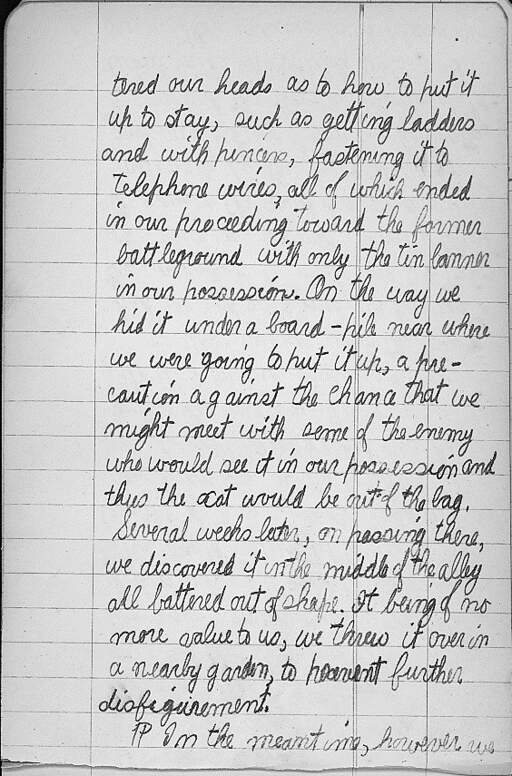 tered our heads as to how to put it
up to stay, such as getting ladders
and with pincers, fastening it to
telephone wires, all of which ended
in our proceeding toward the former
battleground with only the tin banner
in our possession. On the way we
hid it under a board-pile near where
we were going to put it up, a pre-
caution against the chance that we
might meet with some of the enemy
who would see it in our possession and
thus the cat would be out of the bag.
Several weeks later, on passing there,
we discovered it in the middle of the alley
all battered out of shape. It being of no
more value to us, we threw it over in
a nearby garden, to prevent further
disfigurement.
¶ In the meantime, however we